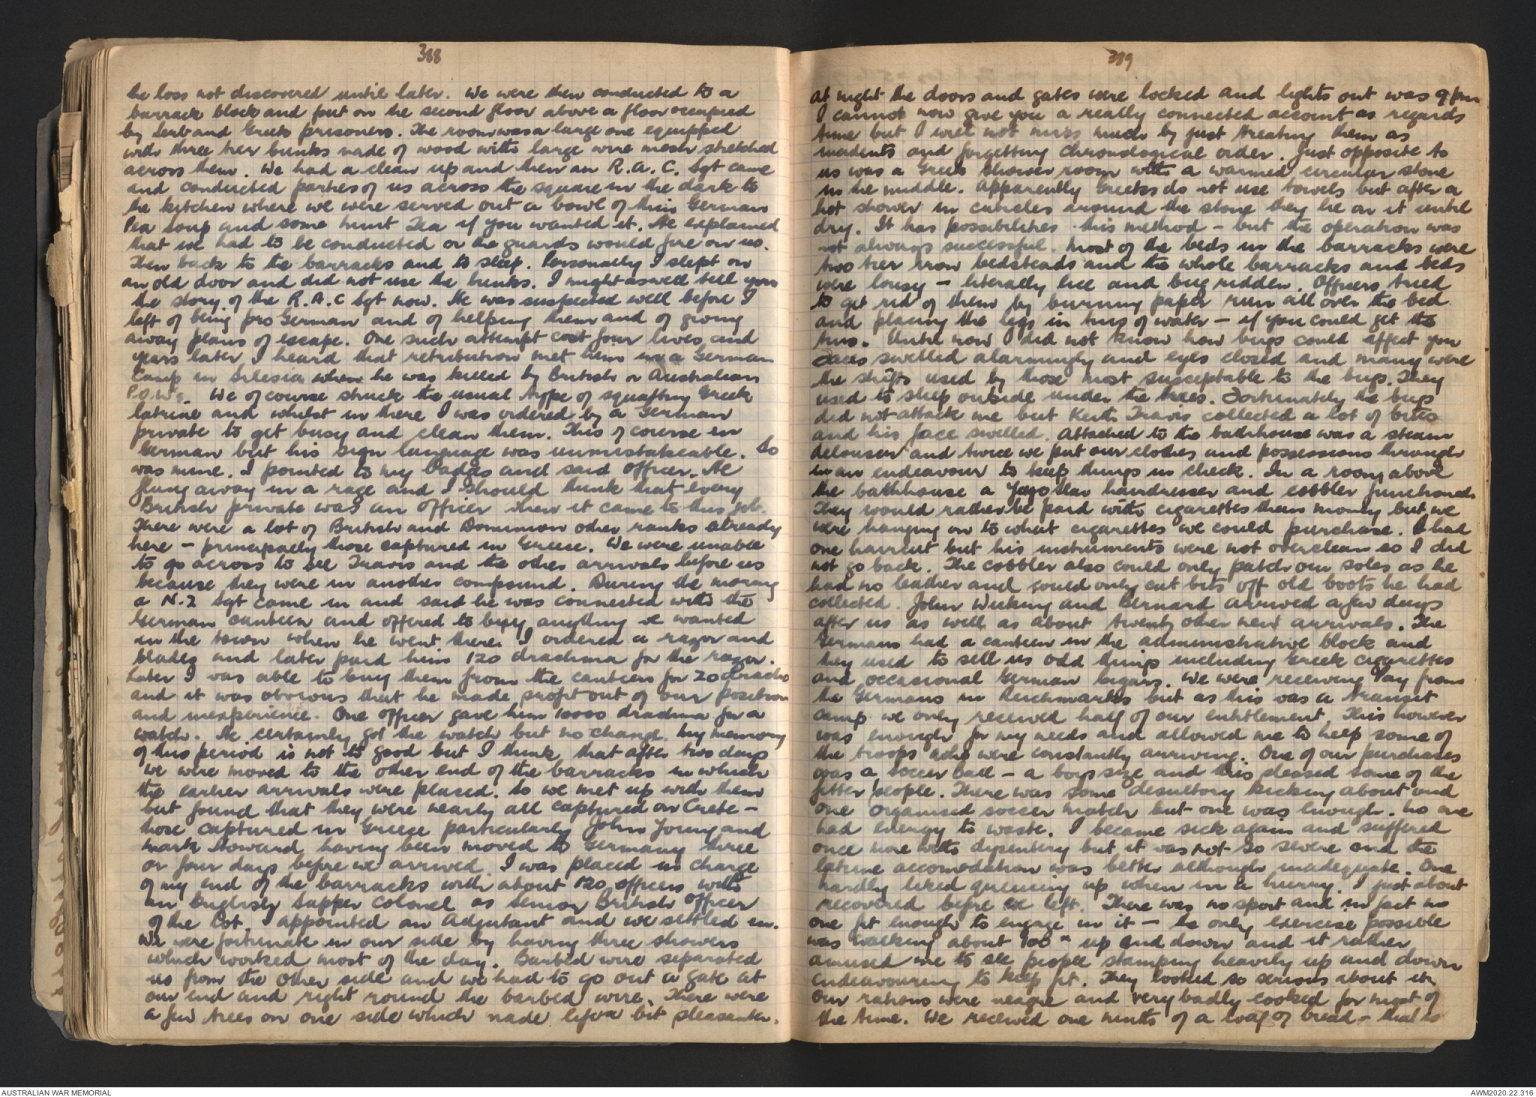 388
he loss not discovered until later. We were then conducted to a
barrack block and put on the second floor above a floor occupied
by Serb and Greek prisoners. The room was a large one equipped
with three tier bunks made of wood with large wire mesh stretched
across them. We had a clean up and then an R.A.C. Sgt came
and conducted parties of us across the square in the dark to
the kitchen where we were served out a bowl of thin German
Pea Soup and some mint Tea if you wanted it. He explained
that we had to be conducted or the guards would fire on us.
Then back to the barracks and to sleep. Personally I slept on
an old door and did not use the bunks. I might as well tell you
the story of the R.A.C Sgt now. He was suspected well before I
left of being pro German and of helping them and of giving
away plans of escape. One such attempt cost four lives and
years later I heard that retribution met him in a German
Camp in Silesia when he was killed by British or Australian
P.O.W's. We of course struck the usual type of squatting Greek
latrine and whilst in there I was ordered by a German
private to get busy and clean them. This of course in
German but his sign language was unmistakeable. So
was mine. I pointed to my badges and said officer. He
flung away in a rage and I should think that every
British private was an officer when it came to this job.
There were a lot of British and Dominion other ranks already
here - principally those captured in Greece. We were unable
to go across to see Travis and the other arrivals before us
because they were in another compound. During the morning
a N.Z Sgt came in and said he was connected with the
German canteen and offered to buy anything we wanted
in the town when he went there. I ordered a razor and
blades and later paid him 120 drachma for the razor.
Later I was able to buy them from the canteen for 20 drachs
and it was obvious that he made profit out of our position
and inexperience. One officer gave him 10000 drachma for a
watch. He certainly got the watch but no change. My memory
of this period is not to good but I think that after two days
we were moved to the other end of the barracks in which
the earlier arrivals were placed. So we met up with them
but found that they were nearly all captured on Crete -
those captured in Greece particularly John Young and
Mark Howard having been moved to Germany three
or four days before we arrived. I was placed in charge
of my end of the barracks with about 120 officers with
an English Sapper Colonel as Senior British Officer
of the lot. I appointed an Adjutant and we settled in.
We were fortunate in our side by having three showers
which worked most of the day. Barbed wire separated
us from the other side and we had to go out a gate at
our end and right round the barbed wire. There were
a few trees on one side which made life a bit pleasanter.
389
at night the doors and gates were locked and lights out was 9 pm
I cannot now give you a really connected account as regards
time but I will not miss much by just treating them as
incidents and forgetting chronological order. Just opposite to
us was a Greek shower room with a warmed circular stone
in the middle. Apparently Greeks do not use towels but after a
hot shower in cubicles around the stone they lie on it until
dry. It has possibilities this method - but the operation was
not always successful. Most of the beds in the barracks were
two tier iron bedsteads and the whole barracks and beds
were lousy - literally lice and bug ridden. Officers tried
to get rid of them by burning paper run all over the bed
and placing the legs in tins of water - if you could get the
tins. Until now I did not know how bugs could affect you
Faces swelled alarmingly and eyes closed and many were
the shifts used by those most susceptable to the bugs. They
used to sleep outside under the trees. Fortunately the bugs
did not attack me but Keith Travis collected a lot of bites
and his face swelled. Attached to the bathhouse was a steam
delouser and twice we put our clothes and possessions through
in an endeavour to keep things in check. In a room above
the bathhouse a Yugo Slav hairdresser and cobbler functioned.
They would rather be paid with cigarettes than money but we
were hanging on to what cigarettes we could purchase. I had
one haircut but his instruments were not overclean so I did
not go back. The cobbler also could only patch our soles as he
had no leather and could only cut bits off old boots he had
collected. John Wicking and Bernard arrived a few days
after us as well as about twenty other new arrivals. The
Germans had a canteen in the administrative block and
they used to sell us odd things including Greek cigarettes
and occasional German cigars. We were receiving Pay from
the Germans in Reichmarks but as this was a transit
camp we only received half of our entitlement. This however
was enough for my needs and allowed me to keep some of
the troops who were constantly arriving. One of our purchases
was a soccer ball - a boys size and this pleased some of the
fitter people. There was some desultory kicking about and
one organised soccer match but one was enough. No one
had energy to waste. I became sick again and suffered
once more with dysentery but it was not so severe and the
latrine accomodation was better although inadequate. One
hardly liked queueing up when in a hurry. I just about
recovered before we left. There was no sport and in fact no
one fit enough to engage in it - the only exercise possible
was walking about 100 x up and down and it rather
amused me to see people stamping heavily up and down
endeavouring to keep fit. They looked so serious about it.
Our rations were meagre and very badly cooked for most of
the time. We received one ninth of a loaf of bread - that is
AUSTRALIAN WAR MEMORIAL
AWM2020.22.316